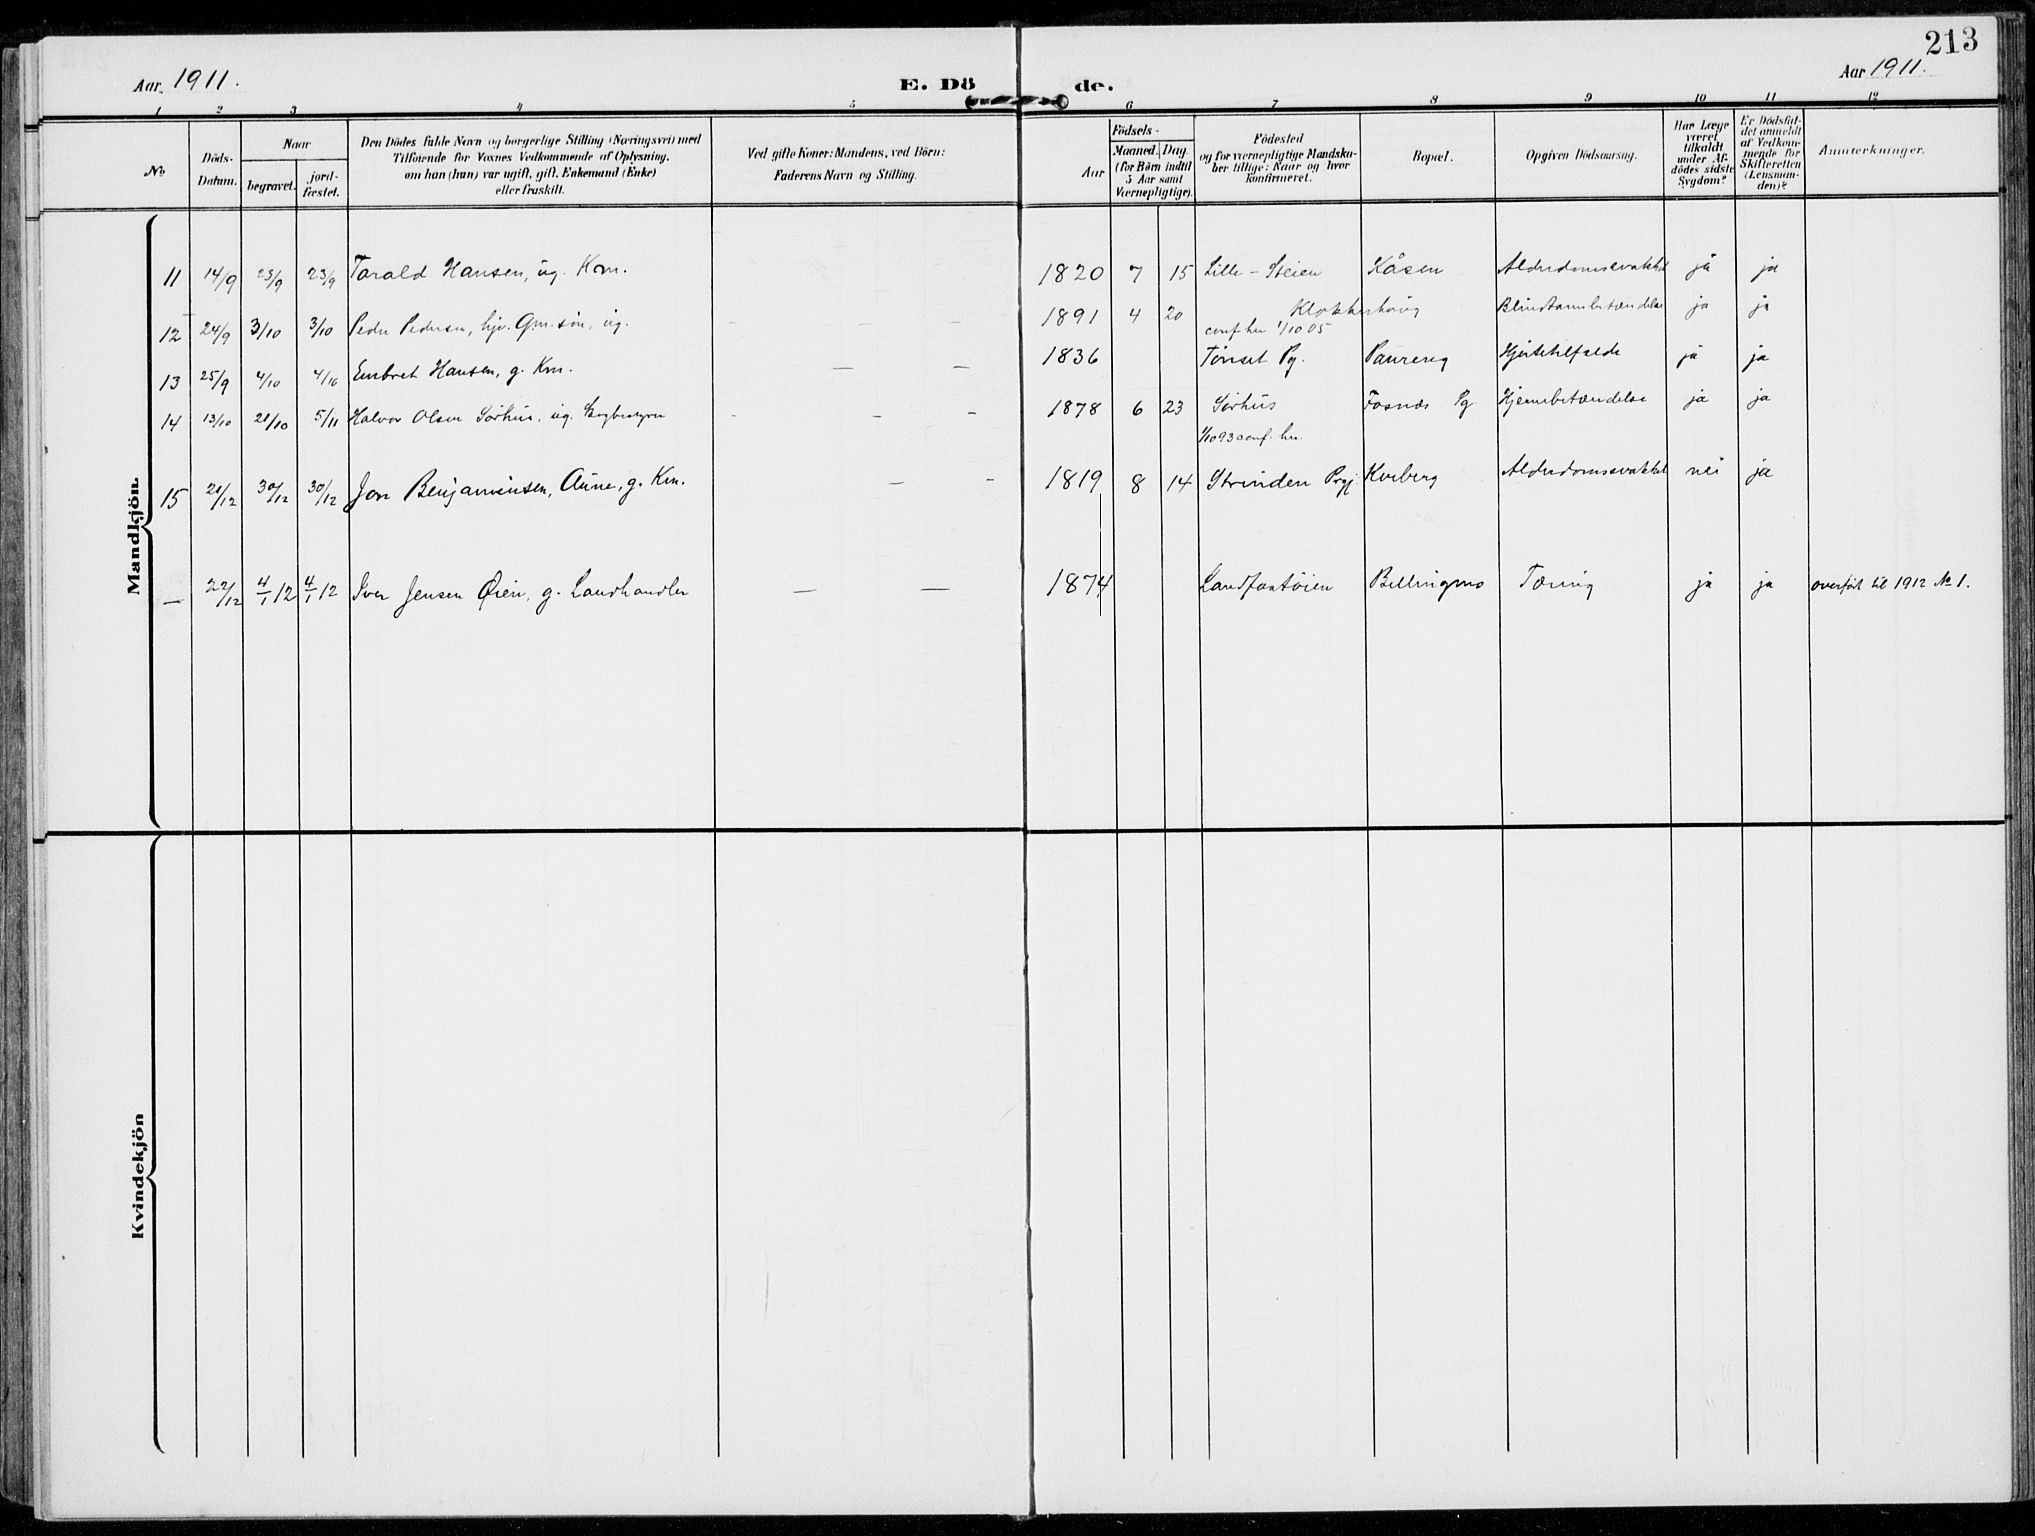 213
Aar 1911.
E. Döde.
Aar 1911.
1 2 3 4 5 6 7 8 9 10 11 12
No
Döds-Datum.
Naar
begravet.
jord-fæstet.
Den Dödes fulde Navn og borgerlige Stilling (Næringsvei) med
Tilföiende for Voxnes Vedkommende af Oplysning,
om han (hun) var ugift, gift, Enkemand (Enke)
eller fraskilt.
Ved gifte Koner: Mandens, ved Börn:
Faderens Navn og Stilling.
Födsels-
Aar
Maaned. Dag
(for Börn indtil
5 Aar samt
Værnepligtige).
Födested
og for værnepligtige Mandska-
ber tillige: Naar og hvor
konfirmeret.
Bopæl.
Opgiven Dödsaarsag.
Har Læge
været
tilkaldt
under Af-
dödes sidste
Sygdom?
Er Dödsfal-
det anmeldt
af Vedkom-
mende for
Skifteretten
(Lensman-
den)?
Anmærkninger.
Mandkjön.
11 14/9 23/9 23/9 Tarald Hansen, ug. Km. 1820 7 15 Lille-Steien Kåsen Alderdomssvakhet ja ja
12 24/9 3/10 3/10 Peder Pedersen, hjv. Gm. søn, ug. - - - 1891 4 20 Klokkerhaug Blindtarmbetændelse ja ja
conf. her 1/10 05
13 25/9 4/10 4/10 Embret Hansen, g. Km. — — 1836 Tønset Pg. Paureng Hjertetilfælde ja ja
14 13/10 28/10 5/11 Halvor Olsen Sørhus, ug. - - - 1878 6 23 Sørhus Fosnæs Pg. Hjernebetændelse ja ja
1/10 93 conf. her.
15 21/12 30/12 30/12 Jon Benjaminsen, Aune, g. Km. — — - 1819 8 14 Strinden Prgj. Kveberg Alderdomssvakhet nei ja
— 22/12 4/1 12 4/1 12 Iver Jensen Øien, g. Landhandler — — 1874 Landfastøien Bellingmo Tæring ja ja overført til 1912 № 1.
Kvindekjön